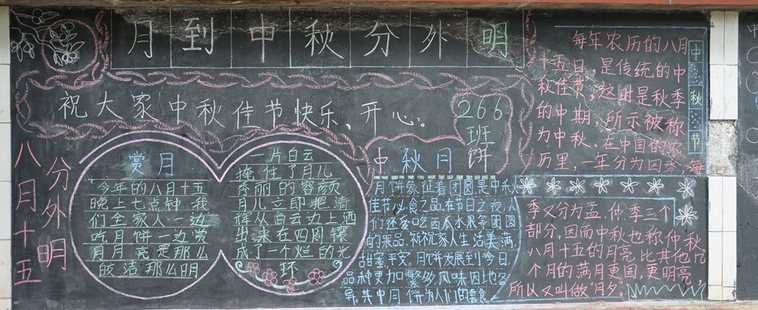 月到中秋分外明
祝大家中秋佳节快乐、开心。
266
班
八月十五
分外明
赏月
今年的八月十五
晚上七点钟我
们全家人一边
吃月饼一边赏
月月亮是那么
皎洁那么明
一片白云
掩住了月儿
秀丽的容颜
月儿立即把清
辉从白云边上洒
出来在四周镶
成了一个烂的光
环
中秋月饼
月饼象征着团圆是中秋
佳节必食之品在节日之夜人
们还爱吃西瓜水果等团圆
的果品祈祝家人生活美满
甜蜜平安月饼发展到今日
品种更加繁多风味因地各
异其中月饼为人们的喜食
每年农历的八月
十五日，是传统的中
秋佳节，这时是秋季
的中期，所示被称
为中秋，在中国的农
历里，一年分为四季，每
中秋节
季又分为孟、仲、季三个
部分，因而中秋也称仲秋
八月十五的月亮比其他几
个月的满月更圆，更明亮
所以又叫做“月夕，